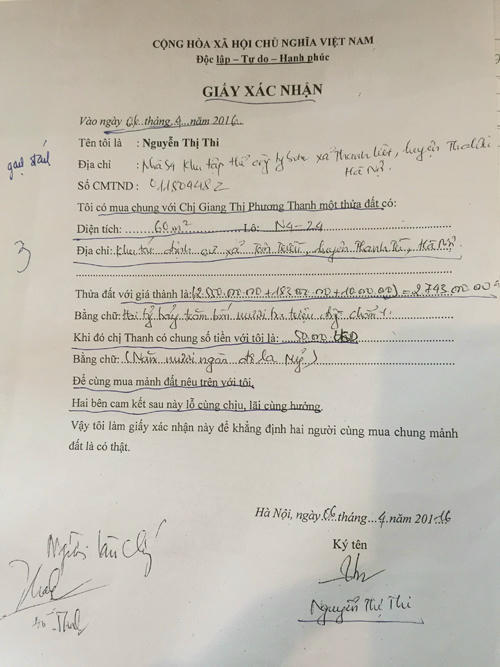 CỘNG HÒA XÃ HỘI CHỦ NGHĨA VIỆT NAM
Độc lập – Tự do – Hạnh phúc
GIẤY XÁC NHẬN
Vào ngày 06 tháng 4 năm 2016
Tên tôi là : Nguyễn Thị Thi
Địa chỉ : khu tập thể xã Thanh Liệt, huyện
Hà Nội
Số CMTND : 011804482
Tôi có mua chung với Chị Giang Thị Phương Thanh một thửa đất có:
Diện tích: 60 m² Lô: N4-24
Địa chỉ: Khu tái định cư xã Tân Triều, huyện Thanh Trì, Hà Nội
3
Thửa đất với giá thành là: = 2.743.000.000đ
Bằng chữ: Hai tỷ bảy trăm bốn mươi ba triệu đồng chẵn
Khi đó chị Thanh có chung số tiền với tôi là: 50.000 USD
Bằng chữ: (Năm mươi ngàn đô la Mỹ)
Để cùng mua mảnh đất nêu trên với tôi.
Hai bên cam kết sau này lỗ cùng chịu, lãi cùng hưởng.
Vậy tôi làm giấy xác nhận này để khẳng định hai người cùng mua chung mảnh
đất là có thật.
Hà Nội, ngày 06 tháng 4 năm 2016
Người làm chứng
Ký tên
Nguyễn Thị Thi